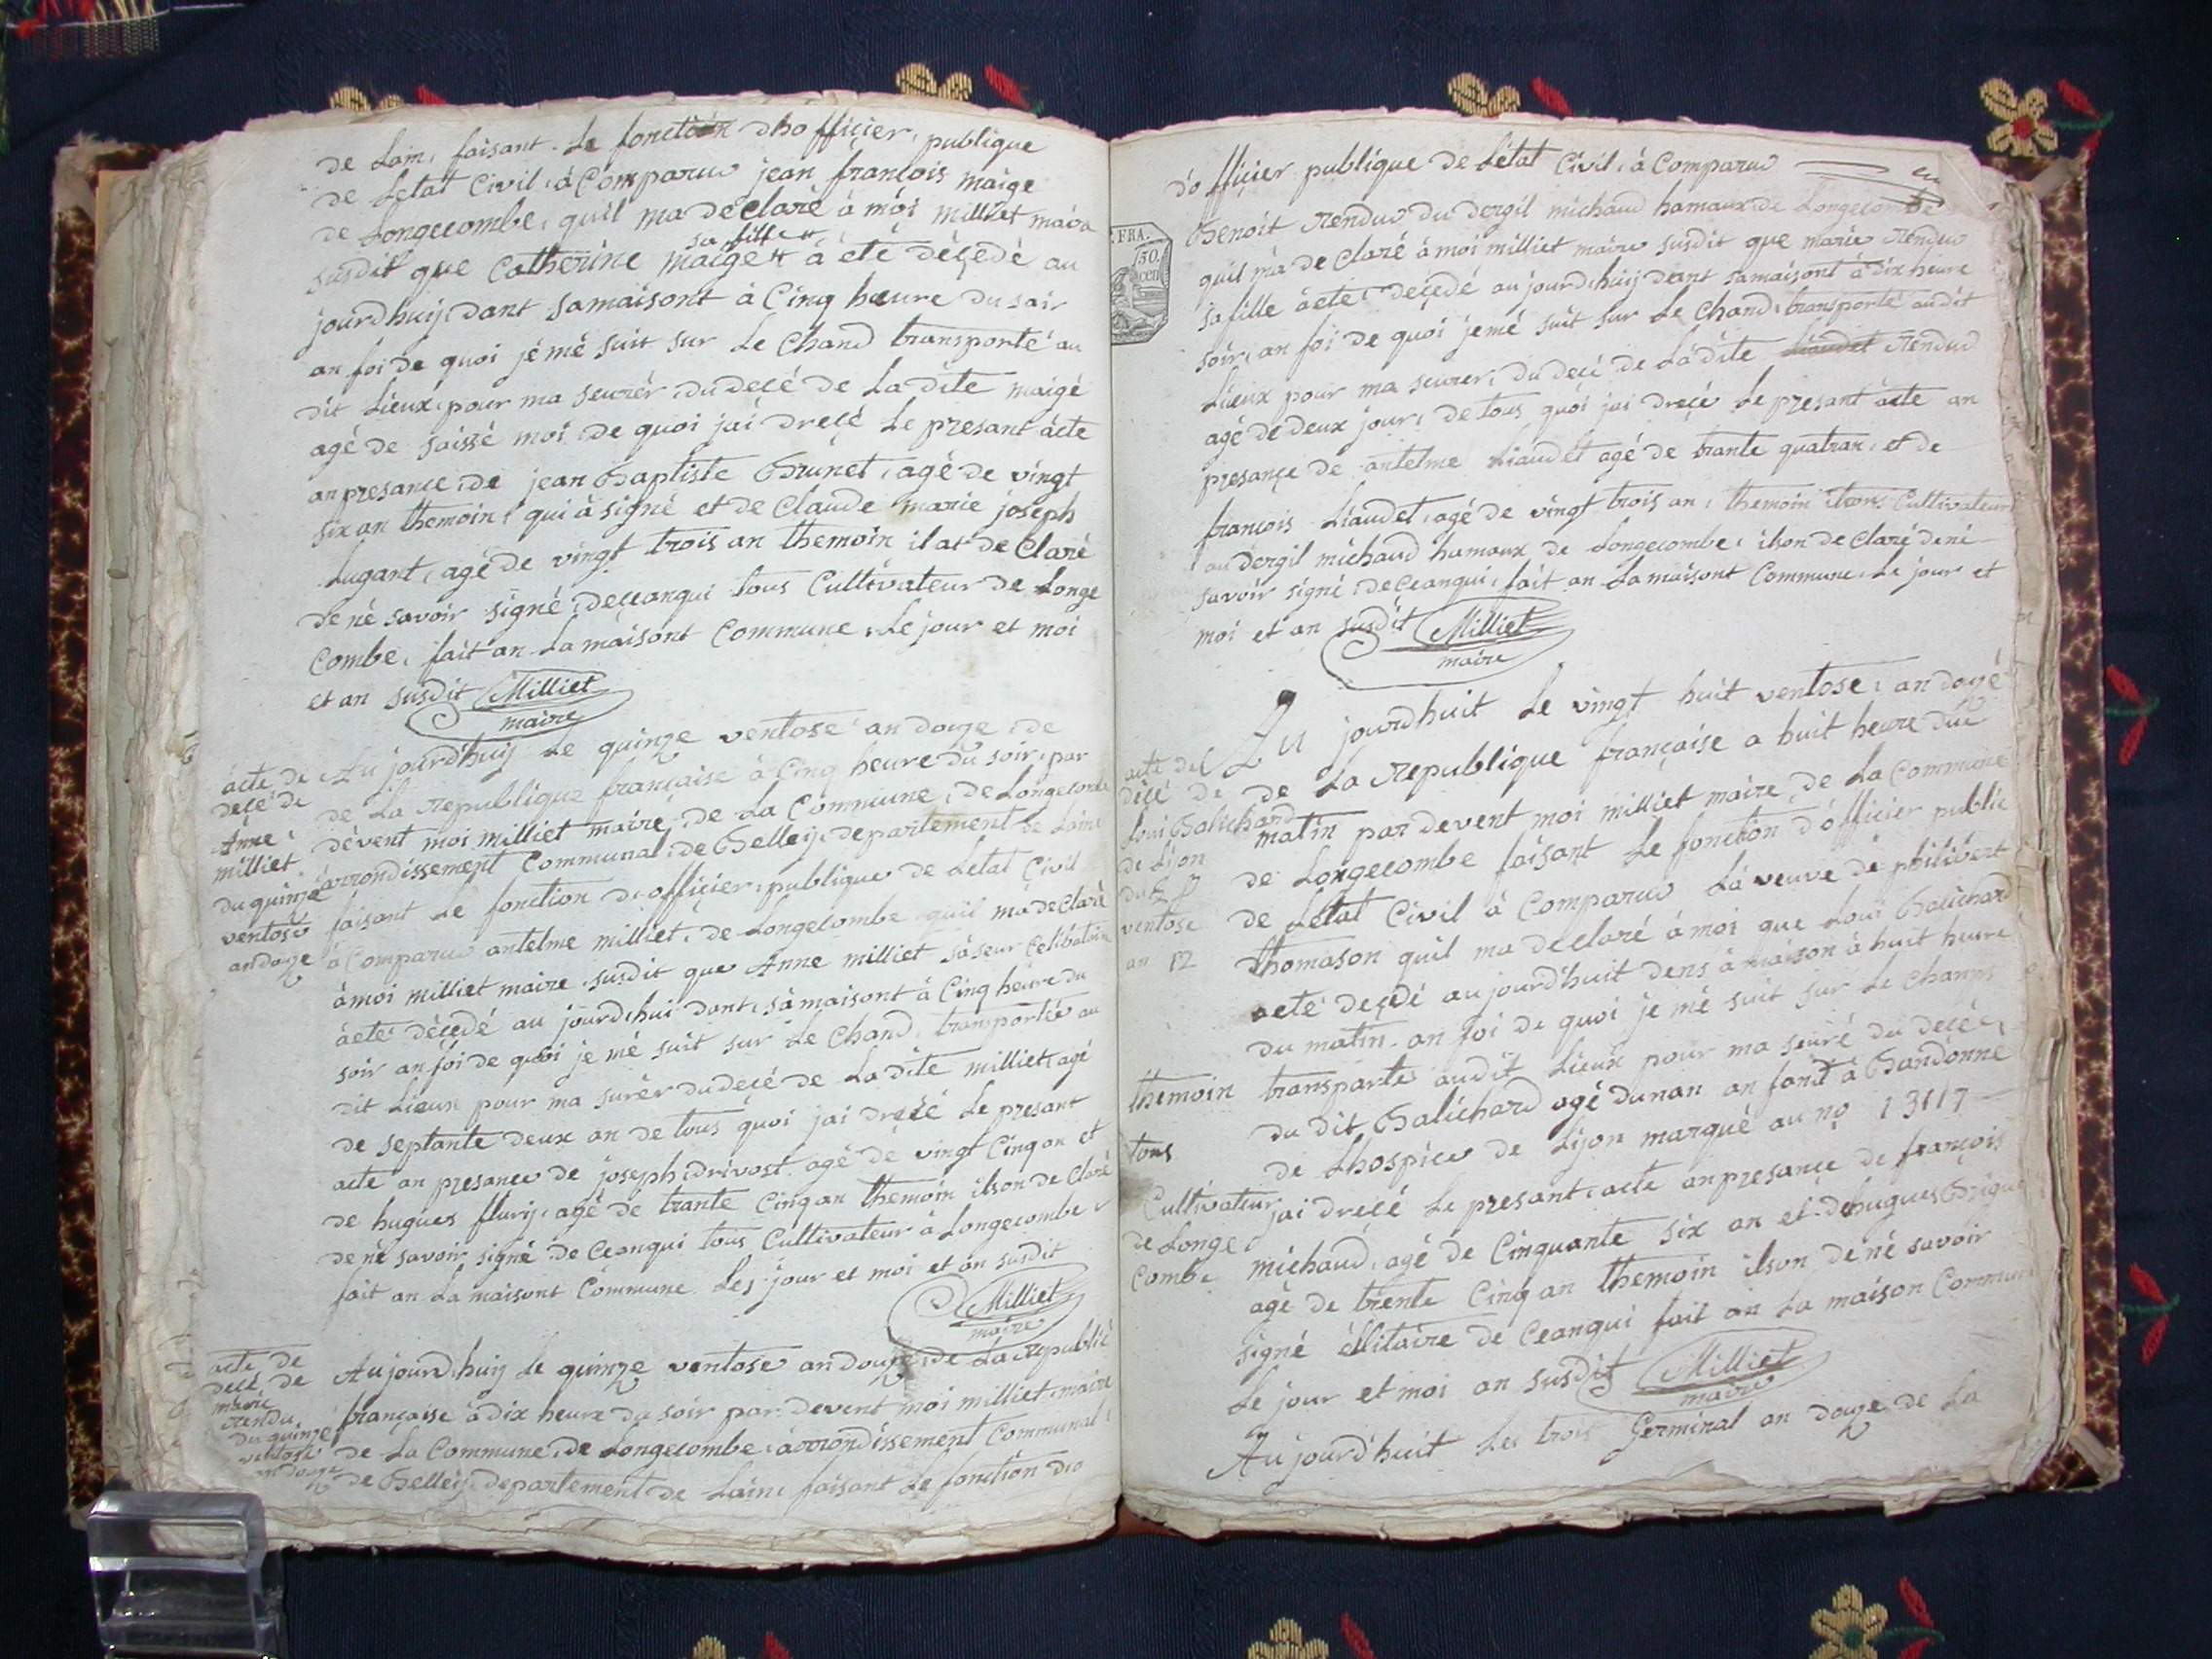 de Lain, faisant Le fonction dho fficier, publique
de Letat Civil, à Comparu jean françois maige
de Longecombe, quil ma declaré à moi milliet maire
sa fille
susdit que Catherine maige à été déçedé au
jourdhuij, dant samaisont à Cinq heure du sair
an foi de quoi jé mé suit sur Le Chand transporté au
dit Lieux, pour ma seurér du decé de La dite maigé
agé de saissé moi de quoi jai dreçé Le presant àcte
anpresance, de jean Baptiste Brunet, agé de vingt
six an themoin, qui à signé et de Claude marie joseph
Lugant, agé de vingt trois an themoin il at de Claré
de né savoir signé, deçeanqui tous Cultivateur de Longe
Combe, fait an La maisont Commune, Le jour et moi
et an susdit Milliet
maire
acte de
decé de
Anne
milliet
du quinzé
ventose
an douze
Aujourd'huij Le quinze ventose an douze, de
de La Republique française à Cinq heure du soir, par
dévent moi milliet mairé, de La Commune, de Longecombe
arrondissement Communal, de Belleij, departement de Lain
faisant Le fonction d'officier, publique de Letat Civil
à Comparu antelme milliet, de Longecombe quil ma declaré
àmoi milliet maire susdit que Anne milliet sa seur Celibatair
àeté déçedé au jourd,hui dant, sa maisont à Cinq heure du
soir an foi de quoi je mé suit sur Le Chand, transportée au
dit Lieux pour ma surér du deçé de La dite milliet agé
de septante deux an de tous quoi jai dreçé Le presant
acte an presance de joseph drivost agé de vingt Cinq an et
de hugues flurij, agé de trante Cinq an themoin ilson de Claré
de né savoir signé de Ceanqui tous Cultivateur à Longecombe
fait an La maisont Commune Les jour et moi et an susdit
Milliet
maire
acte de
decé de
marie
rendu
du quinze
ventose
an douze
Aujourd,huij Le quinze ventose an douze, de La Republié
française à dix heure du soir par devent moi milliet maire
de La Commune, de Longecombe arrondissement Communal
de Belleij, departement de Lain, faisant Le fonction do
d'o fficier publique de Létat Civil, à Comparu
.FRA.
50.
cen
Benoit Rendu du dergil michaud hamaux de Longecombe
quil ma de Claré à moi milliet maire susdit que marie Rendu
sa fille àeté deçedé au jourd,huij dant samaisont à dix heure
soir, an foi de quoi jemé suit sur Le Chand, transporté audit
Lieux pour ma seurer, du decé de La dite Liaudet Rendud
agé de deux jour, de tous quoi jai dreçé Le presant àcte an
presançe de antelme Liaudet agé de trante quatran, et de
francois Liaudet, agé de vingt trois an, themoin tous Cultivateur
au dergil michaud hamaux de Longecombe, ilson de Claré dené
savoir signé, deCeanqui, fait an La maisont Commune, Le jour et
moi et an susdit Milliet
maire
acte del
déçé de
Loui Balichard
de Lion
du
ventose
an 12
Au jourdhuit Le vingt huit ventose, an dousé
de La Republique française a huit heure du
matin par devent moi milliet maire, de La Commune
de Longecombe faisant Le fonction d'officier public
de Letat Civil à Comparu La veuve de philibert
thomason quil ma declaré à moi que Loui Balichard
aeté deçedé aujourd'huit dens à maison à huit heure
du matin, an foi de quoi je mé suit sur Le Champs
transporte audit Lieux pour ma seuré du deçé
du dit Balichard agé dunan an fant à Bandonne
de Lhospice de Lijon marqué au no 13117
jai dreçé Le presant, acte anpresançe de françois
michaud, agé de Cinquante six an et dehugues Brique
agé de trente Cinq an themoin ilson de né savoir
signé éllitaire de Ceanqui fait an La maison Commun
Le jour et moi an susdit Milliet
maire
themoin
tous
Cultivateur
de Longe
Combe
Aujourd'huit Les trois Germinal an douze de La